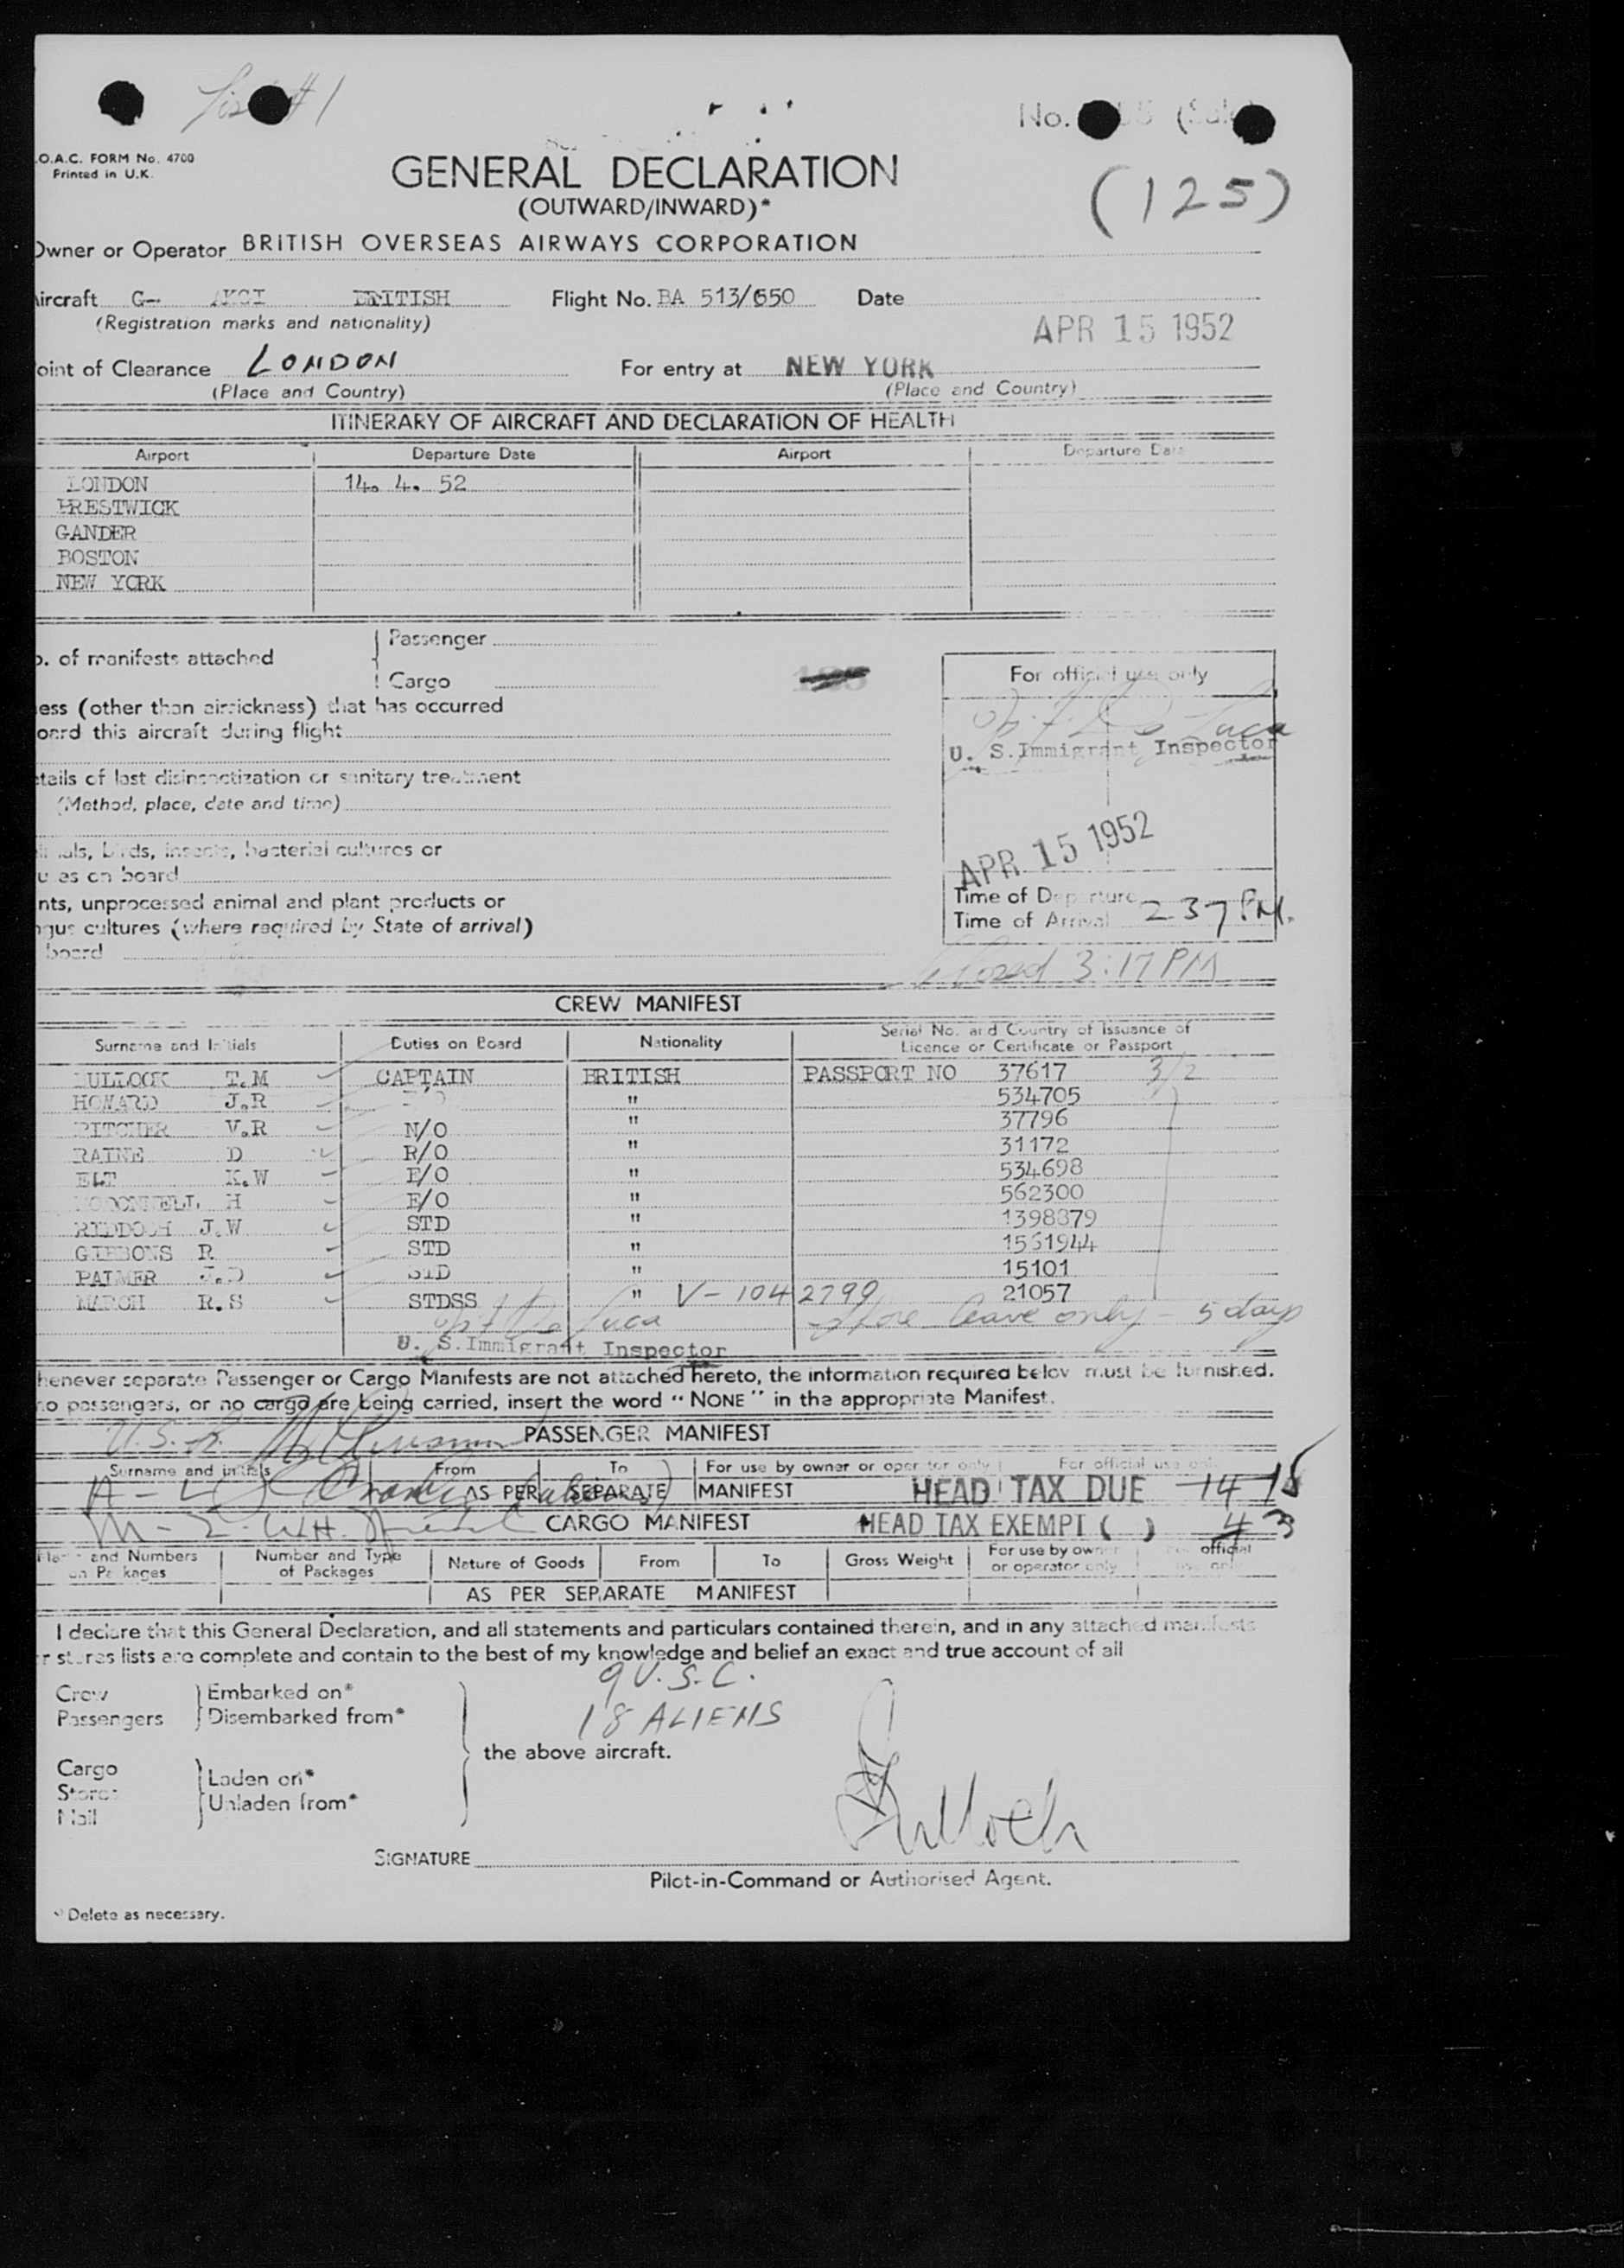 No.
O.A.C. FORM No. 4700
Printed in U.K.
GENERAL DECLARATION
(OUTWARD/INWARD)*
(125)
Owner or Operator BRITISH OVERSEAS AIRWAYS CORPORATION
ircraft G- BRITISH Flight No. BA 513/650 Date
(Registration marks and nationality)
APR 15 1952
oint of Clearance LONDON For entry at NEW YORK
(Place and Country) (Place and Country)
ITINERARY OF AIRCRAFT AND DECLARATION OF HEALTH
Airport Departure Date Airport Departure Date
LONDON 14. 4. 52
PRESTWICK
GANDER
BOSTON
NEW YORK
Passenger
o. of manifests attached
Cargo
For official use only
ess (other than airsickness) that has occurred
oard this aircraft during flight
U. S. Immigrant Inspector
etails of last disinsectization or sanitary treatment
(Method, place, date and time)
APR 15 1952
als, birds, insects, bacterial cultures or
es on board
Time of Departure
nts, unprocessed animal and plant products or
Time of Arrival 2 37 PM.
ngus cultures (where required by State of arrival)
board
3:17 PM
CREW MANIFEST
Surname and Initials Duties on Board Nationality Serial No. and Country of Issuance of
Licence or Certificate or Passport
BULLOCK T.M CAPTAIN BRITISH PASSPORT NO 37617 3/2
HOWARD J.R " 534705
PITCHER V.R N/O " 37796
RAINE D R/O " 31172
ELT K.W E/O " 534698
H E/O " 562300
RIDDOCH J.W STD " 1398879
GIBBONS R STD " 1561944
PALMER STD " 15101
MARCH R.S STDSS " V-1042799 21057
Shore leave only - 5 days
U. S. Immigrant Inspector
henever separate Passenger or Cargo Manifests are not attached hereto, the information required below must be furnished.
no passengers, or no cargo are being carried, insert the word "NONE" in the appropriate Manifest.
PASSENGER MANIFEST
Surname and initials From To For use by owner or operator only For official use only
AS PER SEPARATE MANIFEST HEAD TAX DUE 14 15
CARGO MANIFEST HEAD TAX EXEMPT ( ) 4 3
and Numbers Number and Type Nature of Goods From To Gross Weight For use by owner official
on Packages of Packages or operator only use only
AS PER SEPARATE MANIFEST
I declare that this General Declaration, and all statements and particulars contained therein, and in any attached manifests
r stores lists are complete and contain to the best of my knowledge and belief an exact and true account of all
9 U.S.C.
Crew Embarked on*
18 ALIENS
Passengers Disembarked from*
the above aircraft.
Cargo Laden on*
Stores
Unladen from*
Mail
Bulloch
SIGNATURE
Pilot-in-Command or Authorised Agent.
* Delete as necessary.